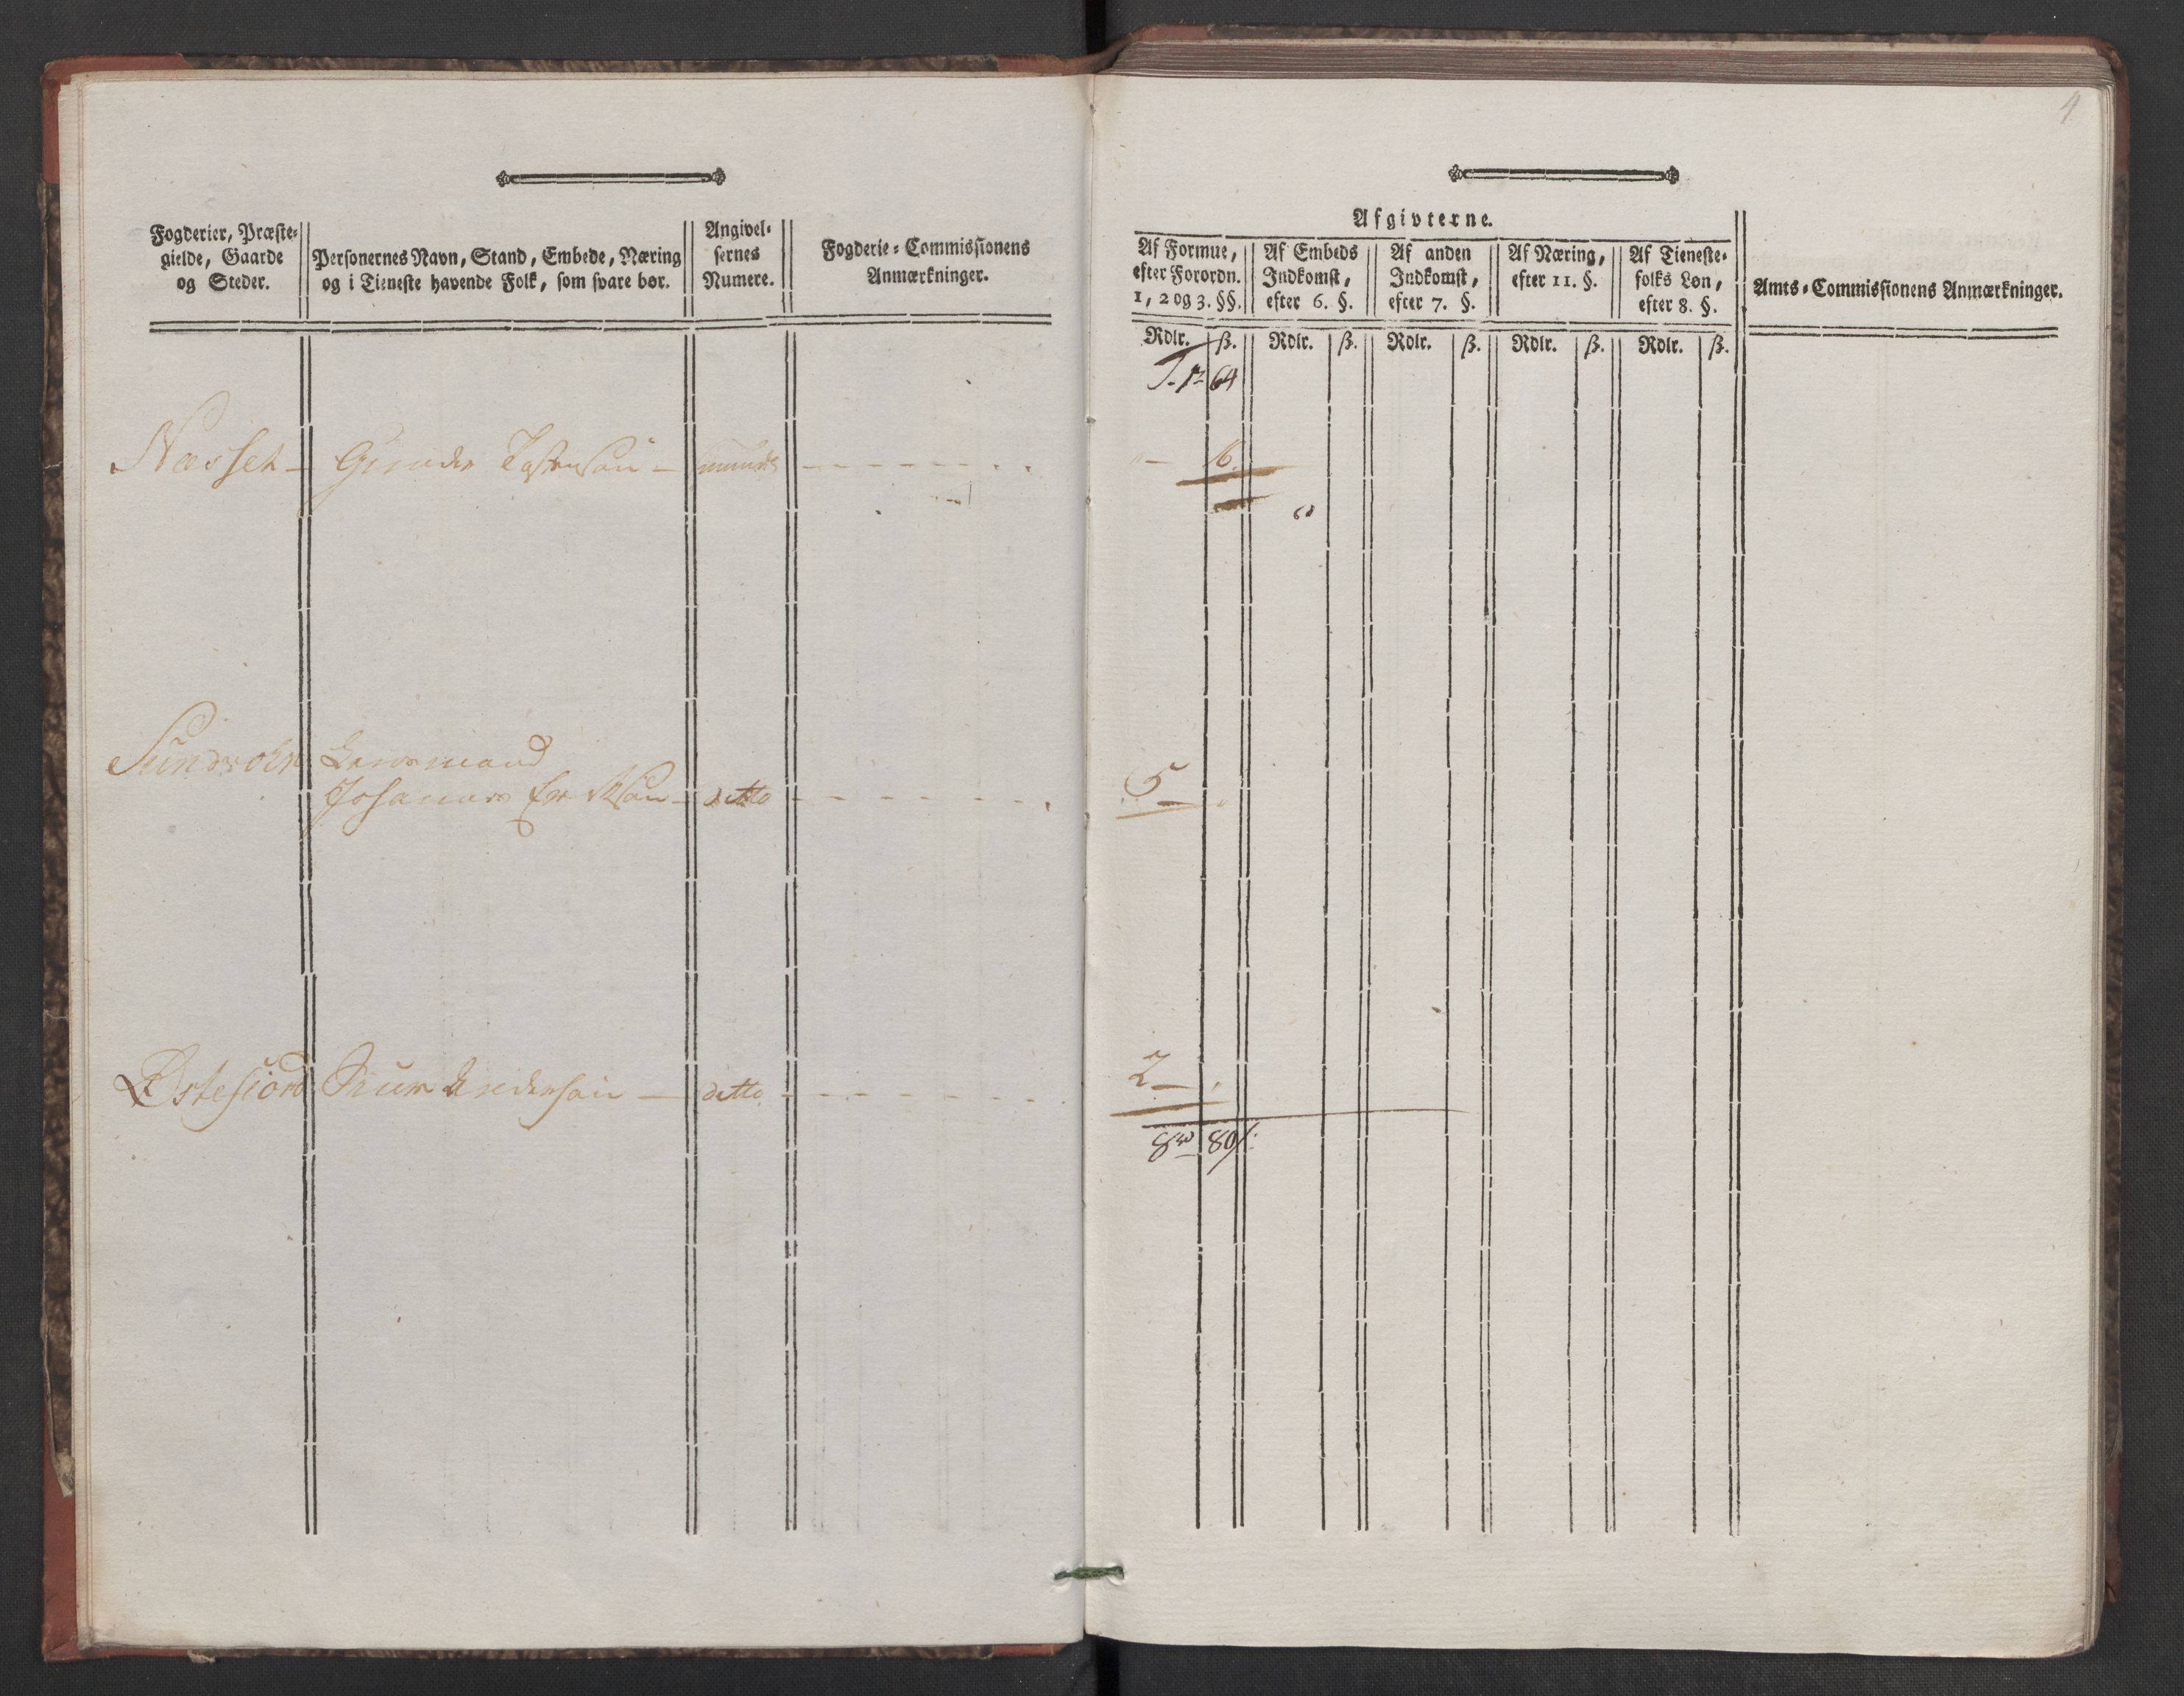 4
Fogderier, Præste-
gielde, Gaarde
og Steder.
Personernes Navn, Stand, Embede, Næring
og i Tieneste havende Folk, som svare bør.
Angivel-
sernes
Numere.
Fogderie-Commissionens
Anmærkninger.
Afgivterne.
Af Formue,
efter Forordn.
1, 2 og 3. §§.
Af Embeds
Indkomst,
efter 6. §.
Af anden
Indkomst,
efter 7. §.
Af Næring,
efter 11. §.
Af Tieneste-
folks Løn,
efter 8. §.
Amts-Commissionens Anmærkninger.
Rdlr. ß. Rdlr. ß. Rdlr. ß. Rdlr. ß. Rdlr. ß.
T. 1 64
Næsset - Gunder - 16
Lensmand
Johannes - ditto 5
Østefiord Siur Endersøn - ditto 2
8 80